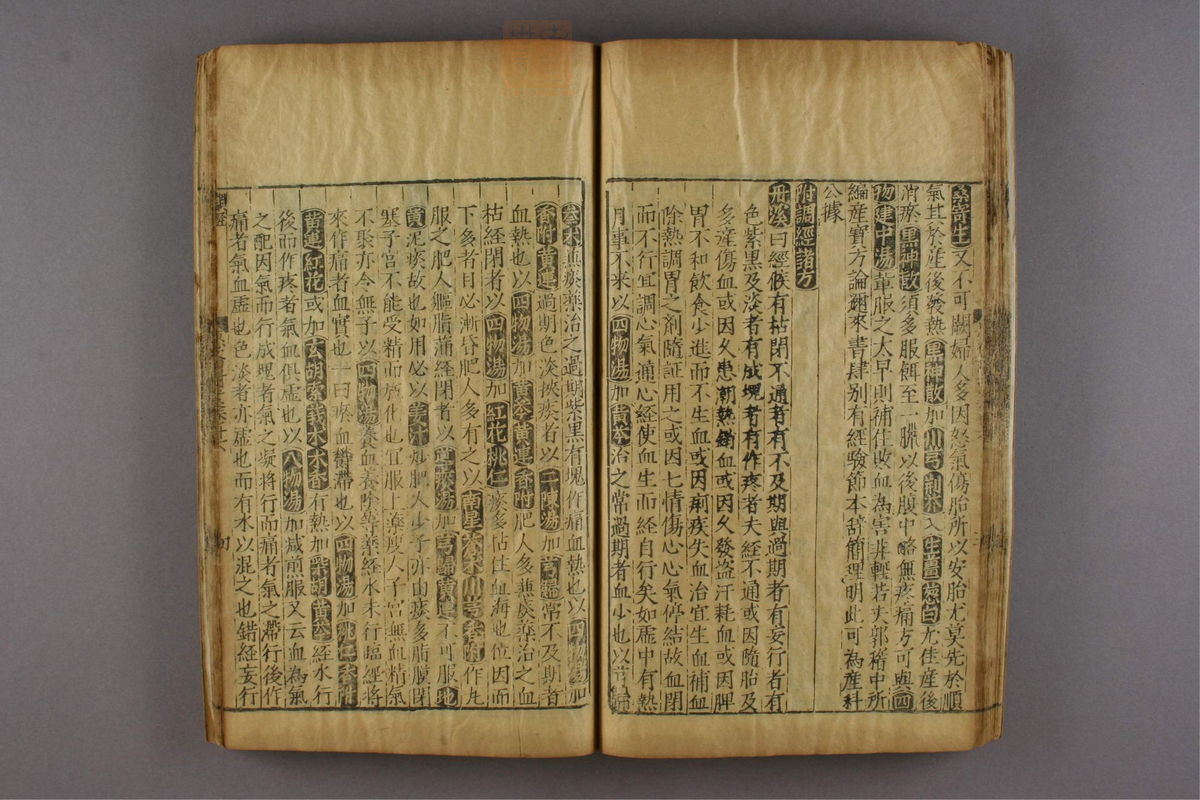 桑寄生又不可闕婦人多因怒氣傷胎所以安胎尤莫先於順
氣其於産後發熱黒神散加川芎荊芥入生薑葱白尤佳産後
消瘀黒神散須多服餌至一臘以後腹中略無疼痛方可與四
物建中湯輩服之太早則補住敗血為害非輕若夫郭稽中所
編産寳方論邇來書肆别有經驗節本辭簡理明此可為産科
公據
附調經諸方
丹溪曰經候有枯閉不通者有不及期與過期者有妄行者有
色紫黒及淡者有成塊者有作疼者夫經不通或因墮胎及
多産傷血或因久患潮熱銷血或因久發盗汗耗血或因脾
胃不和飲食少進而不生血或因痢疾失血治宜生血補血
除熱調胃之剤隨証用之或因七情傷心心氣停結故血閉
而不行宜調心氣通心經使血生而經自行矣如虚中有熱
月事不来以四物湯加黄芩治之常過期者血少也以芎歸
参术兼痰藥治之過期紫黒有塊作痛血熱也以四物湯加
香附黄連過期色淡挾痰者以二陳湯加芎歸常不及期者
血熱也以四物湯加黄芩黄連香附肥人多兼痰藥治之血
枯經閉者以四物湯加紅花桃仁痰多佔住血海也位因而
下多者目必漸昏肥人多有之以南星蒼术川芎香附作丸
服之肥人軀脂滿經閉者以導痰湯加芎歸黄連不可服地
黄泥痰故也如用必以姜汁炒肥人少子亦由痰多脂膜閉
塞子宮不能受精而施化也宜服上藥瘦人子宮無血精氣
不聚亦令無子以四物湯養血養陰等藥經水未行臨經將
來作痛者血實也一曰瘀血欝滯也以四物湯加桃仁香附
黄連紅花或加玄胡索莪术木香有熱加柴胡黄芩經水行
後而作疼者氣血俱虚也以八物湯加减煎服又云血為氣
之配因氣而行成塊者氣之凝將行而痛者氣之滯行後作
痛者氣血虚也色淡者亦虚也而有水以混之也錯經妄行